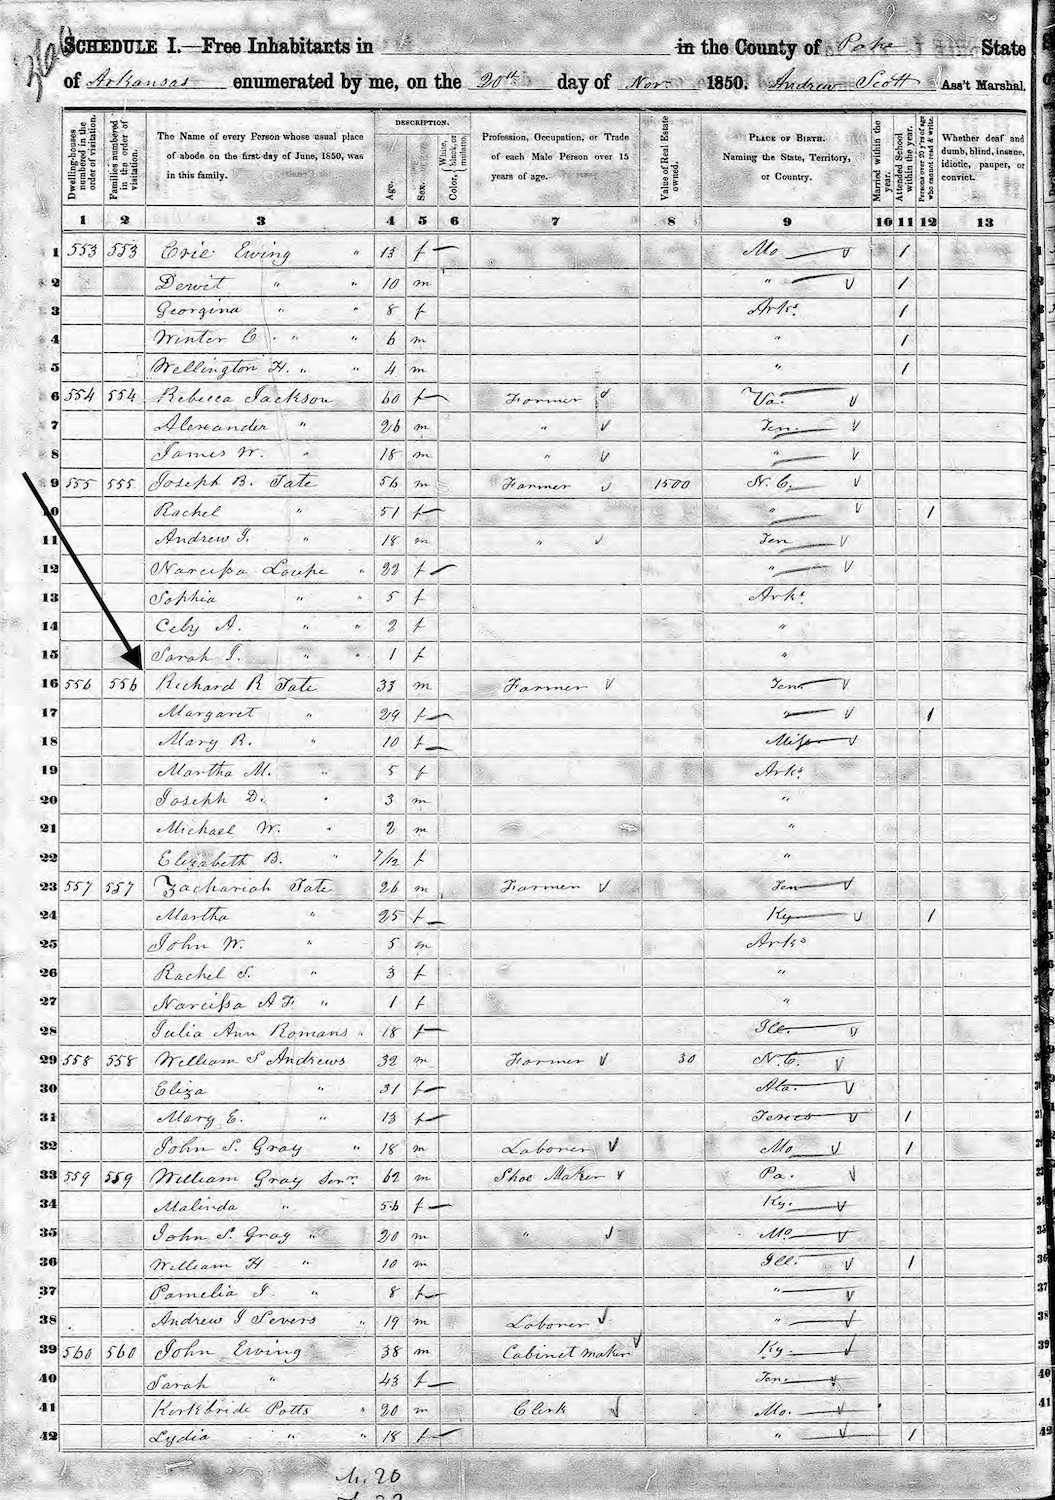 SCHEDULE I.—Free Inhabitants in in the County of Pope State
of Arkansas enumerated by me, on the 20th day of Nov. 1850. Andrew Scott Ass't Marshal.
Dwelling-houses numbered in the order of visitation.
Families numbered in the order of visitation.
The Name of every Person whose usual place of abode on the first day of June, 1850, was in this family.
DESCRIPTION.
Age.
Sex.
Color, { White, black, or mulatto.
Profession, Occupation, or Trade of each Male Person over 15 years of age.
Value of Real Estate owned.
PLACE OF BIRTH. Naming the State, Territory, or Country.
Married within the year.
Attended School within the year.
Persons over 20 y'rs of age who cannot read & write.
Whether deaf and dumb, blind, insane, idiotic, pauper, or convict.
1 2 3 4 5 6 7 8 9 10 11 12 13
1 553 553 Evie Ewing " 13 f Mo 1
2 Dewit " " 10 m " 1
3 Georgina " " 8 f Arks. 1
4 Winter C. " " 6 m " 1
5 Wellington H. " " 4 m " 1
6 554 554 Rebecca Jackson 60 f Farmer Va.
7 Alexander " 26 m " Ten.
8 James W. " 18 m " "
9 555 555 Joseph B. Tate 56 m Farmer 1500 N.C.
10 Rachel " 51 f " 1
11 Andrew J. " 18 m " Ten
12 Narcissa Loupe " 22 f "
13 Sophia " " 5 f Arks
14 Cely A. " " 2 f "
15 Sarah J. " " 1 f "
16 556 556 Richard R Tate 33 m Farmer Ten
17 Margaret " 29 f " 1
18 Mary R. " 10 f Miss
19 Martha M. " 5 f Arks
20 Joseph D. " 3 m "
21 Michael W. " 2 m "
22 Elizabeth B. " 7/12 f "
23 557 557 Zachariah Tate 26 m Farmer Ten
24 Martha " 25 f Ky 1
25 John W. " 5 m Arks
26 Rachel S. " 3 f "
27 Narcissa A F " 1 f "
28 Julia Ann Romans " 18 f Ill.
29 558 558 William S Andrews 32 m Farmer 30 N.C.
30 Eliza " 31 f Ala.
31 Mary E. " 13 f 1
32 John S. Gray " 18 m Laborer Mo 1
33 559 559 William Gray Senr. 62 m Shoe Maker Pa.
34 Malinda " 56 f Ky.
35 John S. Gray " 20 m " Mo
36 William H " 10 m Ill. 1
37 Pamelia J. " 8 f "
38 Andrew J Severs " 19 m Laborer "
39 560 560 John Ewing 38 m Cabinet maker Ky.
40 Sarah " 43 f Ten.
41 Kirkbride Potts " 20 m Clerk Mo.
42 Lydia " " 18 f " 1